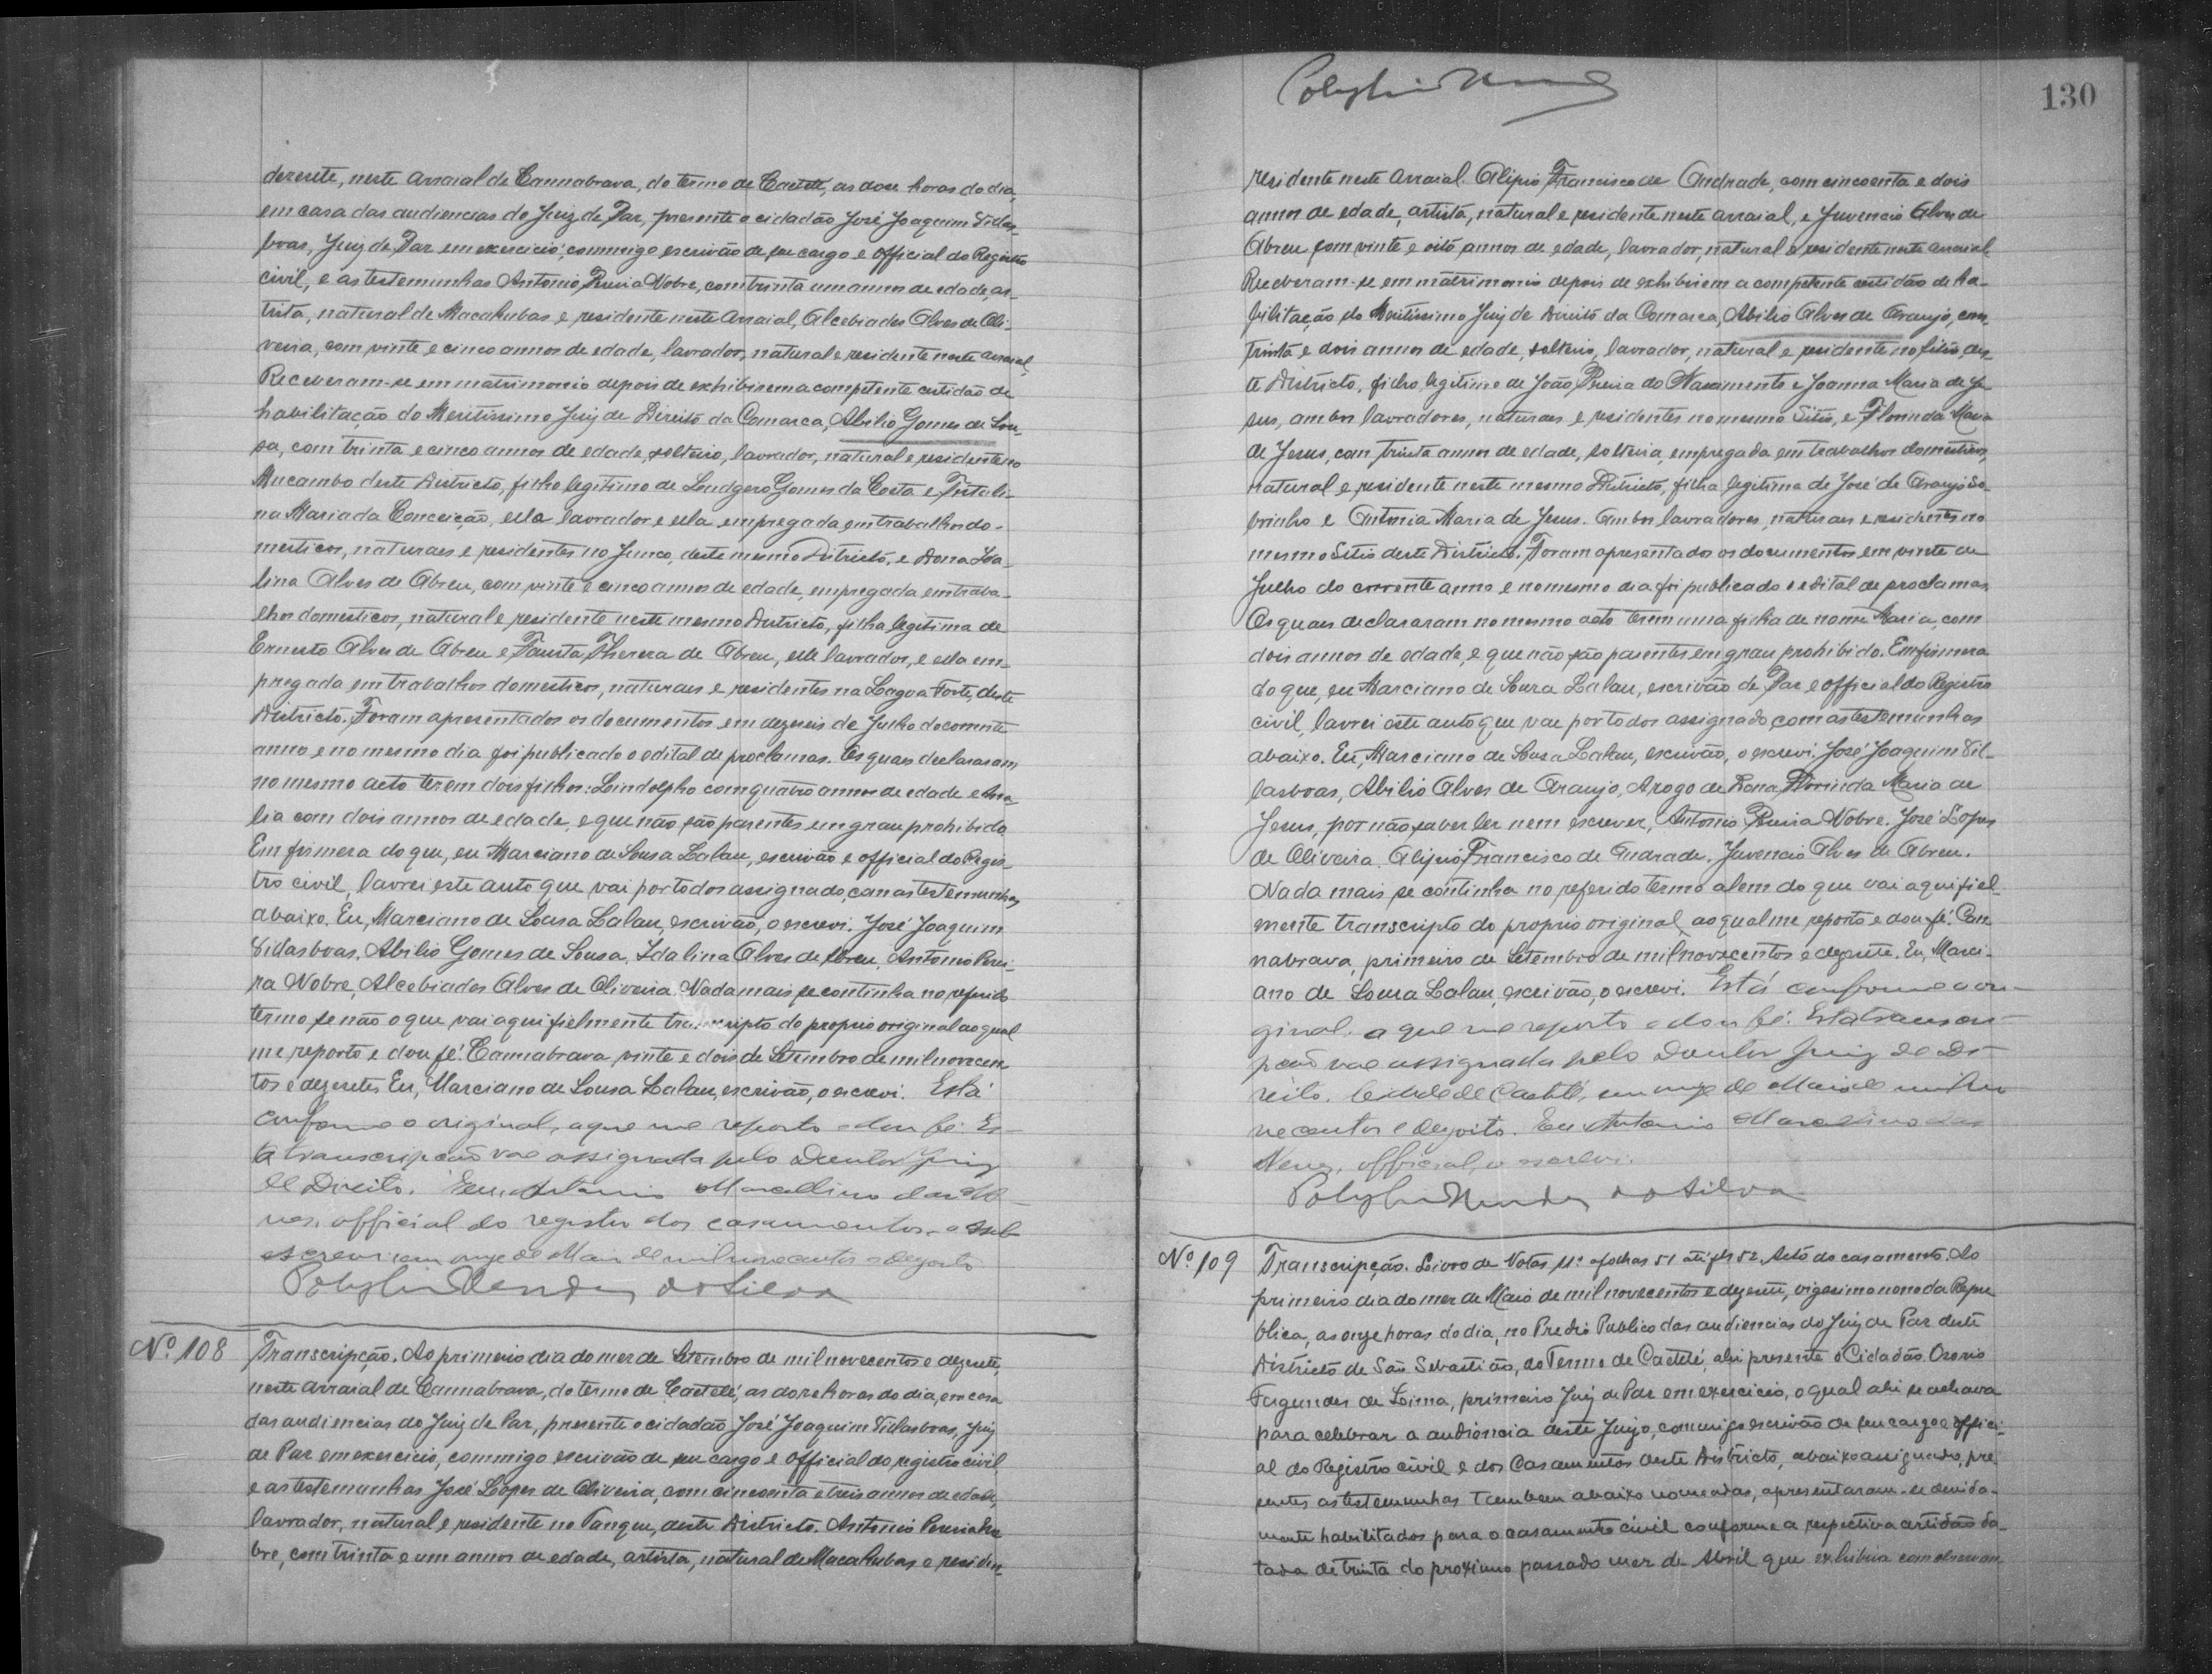 dezesete, neste arraial de Cannabrava, do termo de Caeteté, as doze horas do dia,
em casa das audiencias do Juiz de Paz, presente o cidadão José Joaquim Villas-
boas, Juiz de Paz em exercicio, commigo escrivão de seu cargo e official do Registro
civil, e as testemunhas Antonio Pereira Nobre, com trinta um annos de edade, ar-
tista, natural de Macahubas e residente neste Arraial, Alcebiades Alves de Oli-
veira, com vinte e cinco annos de edade, lavrador, natural e residente neste arraial
Receberam-se em matrimonio depois de exhibirem a competente certidão de
habilitação do Meritissimo Juiz de Direito da Comarca, Abilio Gomes de Sou-
sa, com trinta e cinco annos de edade, solteiro, lavrador, natural e residente no
Mucambo deste Districto, filho legitimo de Loudgero Gomes da Costa e
na Maria da Conceição, elle lavrador e ella empregada em trabalhos do-
mesticos, naturaes e residentes no Junco, deste mesmo Districto, e Dona Ida-
lina Alves de Abreu, com vinte e cinco annos de edade, empregada em traba-
lhos domesticos, natural e residente neste mesmo Districto, filha legitima de
Ernesto Alves de Abreu e Fausta Thereza de Abreu, elle lavrador, e ella em-
pregada em trabalhos domesticos, naturaes e residentes na Lagoa Forte, deste
Districto. Foram apresentados os documentos em dezeseis de Julho do corrente
anno e no mesmo dia foi publicado o edital de proclamas. Os quaes declararam
no mesmo acto terem dois filhos: Lindolpho com quatro annos de edade e
lia com dois annos de edade, e que não são parentes em grau prohibido
Em firmeza do que, eu Marciano de Sousa Lalau, escrivão e official do Regis-
tro civil, lavrei este auto que vai por todos assignado, com as testemunhas
abaixo. Eu, Marciano de Sousa Lalau, escrivão, o escrevi. José Joaquim
Villasboas, Abilio Gomes de Sousa, Idalina Alves de Abreu, Antonio Perei-
ra Nobre, Alcebiades Alves de Oliveira. Nada mais se continha no referido
termo se não o que vai aqui fielmente transcripto do proprio original ao qual
me reporto e dou fé. Cannabrava, vinte e dois de Setembro de mil novecen
tos e dezesete, Eu, Marciano de Sousa Lalau, escrivão, o escrevi. Está
conforme o original, a que me reporto e dou fé. Es-
ta transcripção vae assignada pelo Doutor Juiz
de Direito. Eu, Antonio Marcellino das Ne-
ves, official do registro dos casamentos, o sub-
escrevi em onze de Maio de mil novecentos e dezoito
Mendes da Silva
Nº 108 Transcripção. Ao primeiro dia do mez de Setembro de mil novecentos e dezesete,
neste arraial de Cannabrava, do termo de Caeteté, as doze horas do dia, em casa
das audiencias do Juiz de Paz, presente o cidadão José Joaquim Villasboas, Juiz
de Paz em exercicio, commigo escrivão de seu cargo e official do registro civil,
e as testemunhas José Lopes de Oliveira, com cincoenta e treis annos de edade,
lavrador, natural e residente no Tanque, deste Districto. Antonio Pereira
bre, com trinta e um annos de edade, artista, natural de Macahubas e residen
130
residente neste arraial. Alipio Francisco de Andrade, com cincoenta e dois
annos de edade, artista, natural e residente neste arraial, e Juvencio Alves de
Abreu com vinte e oito annos de edade, lavrador, natural e residente neste arraial
Receberam-se em matrimonio depois de exhibirem a competente certidão de ha-
bilitação do Meritissimo Juiz de Direito da Comarca, Abilio Alves de Araujo, com
trinta e dois annos de edade, solteiro, lavrador, natural e residente no Sitio, des-
te Districto, filho legitimo de João Pereira do Nascimento e Joanna Maria de Je-
sus, ambos lavradores, naturaes e residentes no mesmo Sitio, e Florinda Maria
de Jesus, com trinta annos de edade, solteira, empregada em trabalhos domesticos,
natural e residente neste mesmo Districto, filha legitima de José de Araujo So-
brinho e Antonia Maria de Jesus. Ambos lavradores, naturaes e residentes no
mesmo Sitio deste Districto. Foram apresentados os documentos em vinte de
Julho do corrente anno e no mesmo dia foi publicado o edital de proclamas
Os quaes declararam no mesmo acto terem uma filha de nome Maria, com
dois annos de edade, e que não são parentes em grau prohibido. Em firmeza
do que, eu Marciano de Souza Lalau, escrivão de Paz e official do Registro
civil, lavrei este auto que vae por todos assignado, com as testemunhas
abaixo. Eu, Marciano de Sousa Lalau, escrivão, o escrevi. José Joaquim Vil-
lasboas, Abilio Alves de Araujo, A rogo de Dona Florinda Maria de
Jesus, por não saber ler nem escrever, Antonio Pereira Nobre. José Lopes
de Oliveira. Alipio Francisco de Andrade. Juvencio Alves de Abreu.
Nada mais se continha no referido termo alem do que vai aqui fiel-
mente transcripto do proprio original, ao qual me reporto e dou fé. Can
nabrava, primeiro de Setembro de mil novecentos e dezesete. Eu, Marci-
ano de Sousa Lalau, escrivão, o escrevi. Está conforme o ori-
ginal, a que me reporto e dou fé. Esta transcri-
pção vae assignada pelo Doutor Juiz de Di-
reito. Cidade de Caeteté, em onze de Maio de mil no
vecentos e dezoito. Eu Antonio Marcellino das
Neves, official, o escrevi.
Mendes da Silva
Nº 109 Transcripção. Livro de Notas 11º a folhas 51 até fls 52. Acto do casamento. Ao
primeiro dia do mez de Maio de mil novecentos e dezesete, vigesimo nono da Repu
blica, as onze horas do dia, no Predio Publico das audiencias do Juiz de Paz deste
Districto de São Sebastião, do Termo de Caeteté, ahi presente o Cidadão Ozorio
Fagundes de Lima, primeiro Juiz de Paz em exercicio, o qual ahi se achava
para celebrar a audiencia deste Juizo, commigo escrivão de seu cargo e offici-
al do Registro civil e dos Casamentos deste Districto, abaixo assignado, pre
sentes as testemunhas tambem abaixo nomeadas, apresentaram-se devida-
mente habilitados para o casamento civil conforme a respectiva certidão da-
tada de trinta do proximo passado mez de Abril que exhibira com